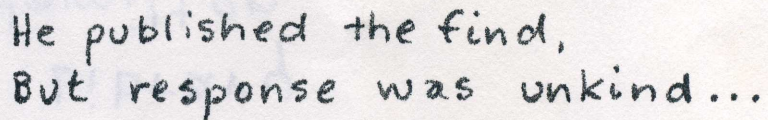 He published the find,
But response was unkind...